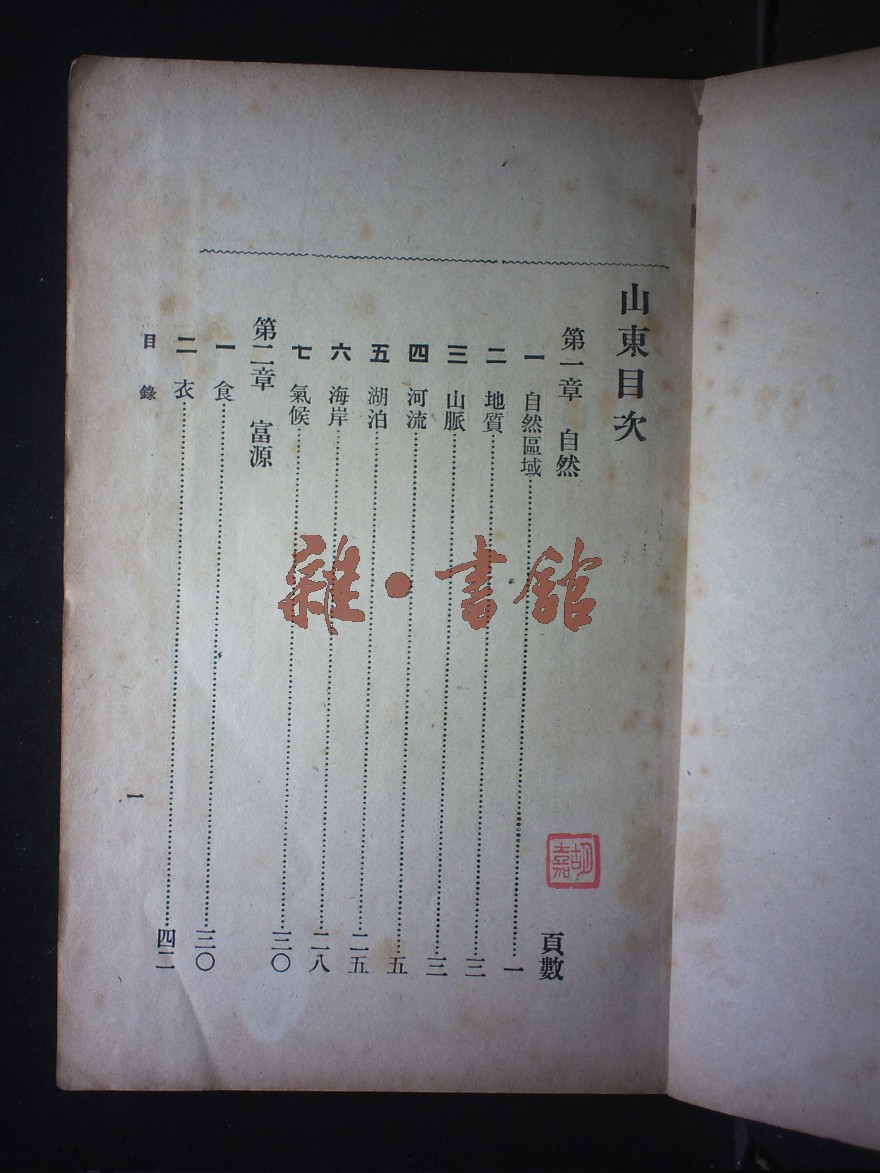 山東目次
第一章 自然 頁數
一 自然區域 一
二 地質 三
三 山脈 三
四 河流 五
五 湖泊 二五
六 海岸 二八
七 氣候 三〇
第二章 富源
一 食 三〇
二 衣 四二
目錄 一
雜·書館
胡嘉